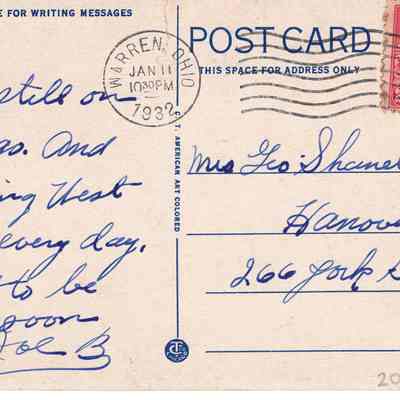 E FOR WRITING MESSAGES
POST CARD
THIS SPACE FOR ADDRESS ONLY
WARREN, OHIO
JAN 11
10 30 PM
1932
still on
as. And
ing West
every day.
to be
soon
Joe B
C. T. AMERICAN ART COLORED
Mrs Geo. Shane
Hanov
266 York
20